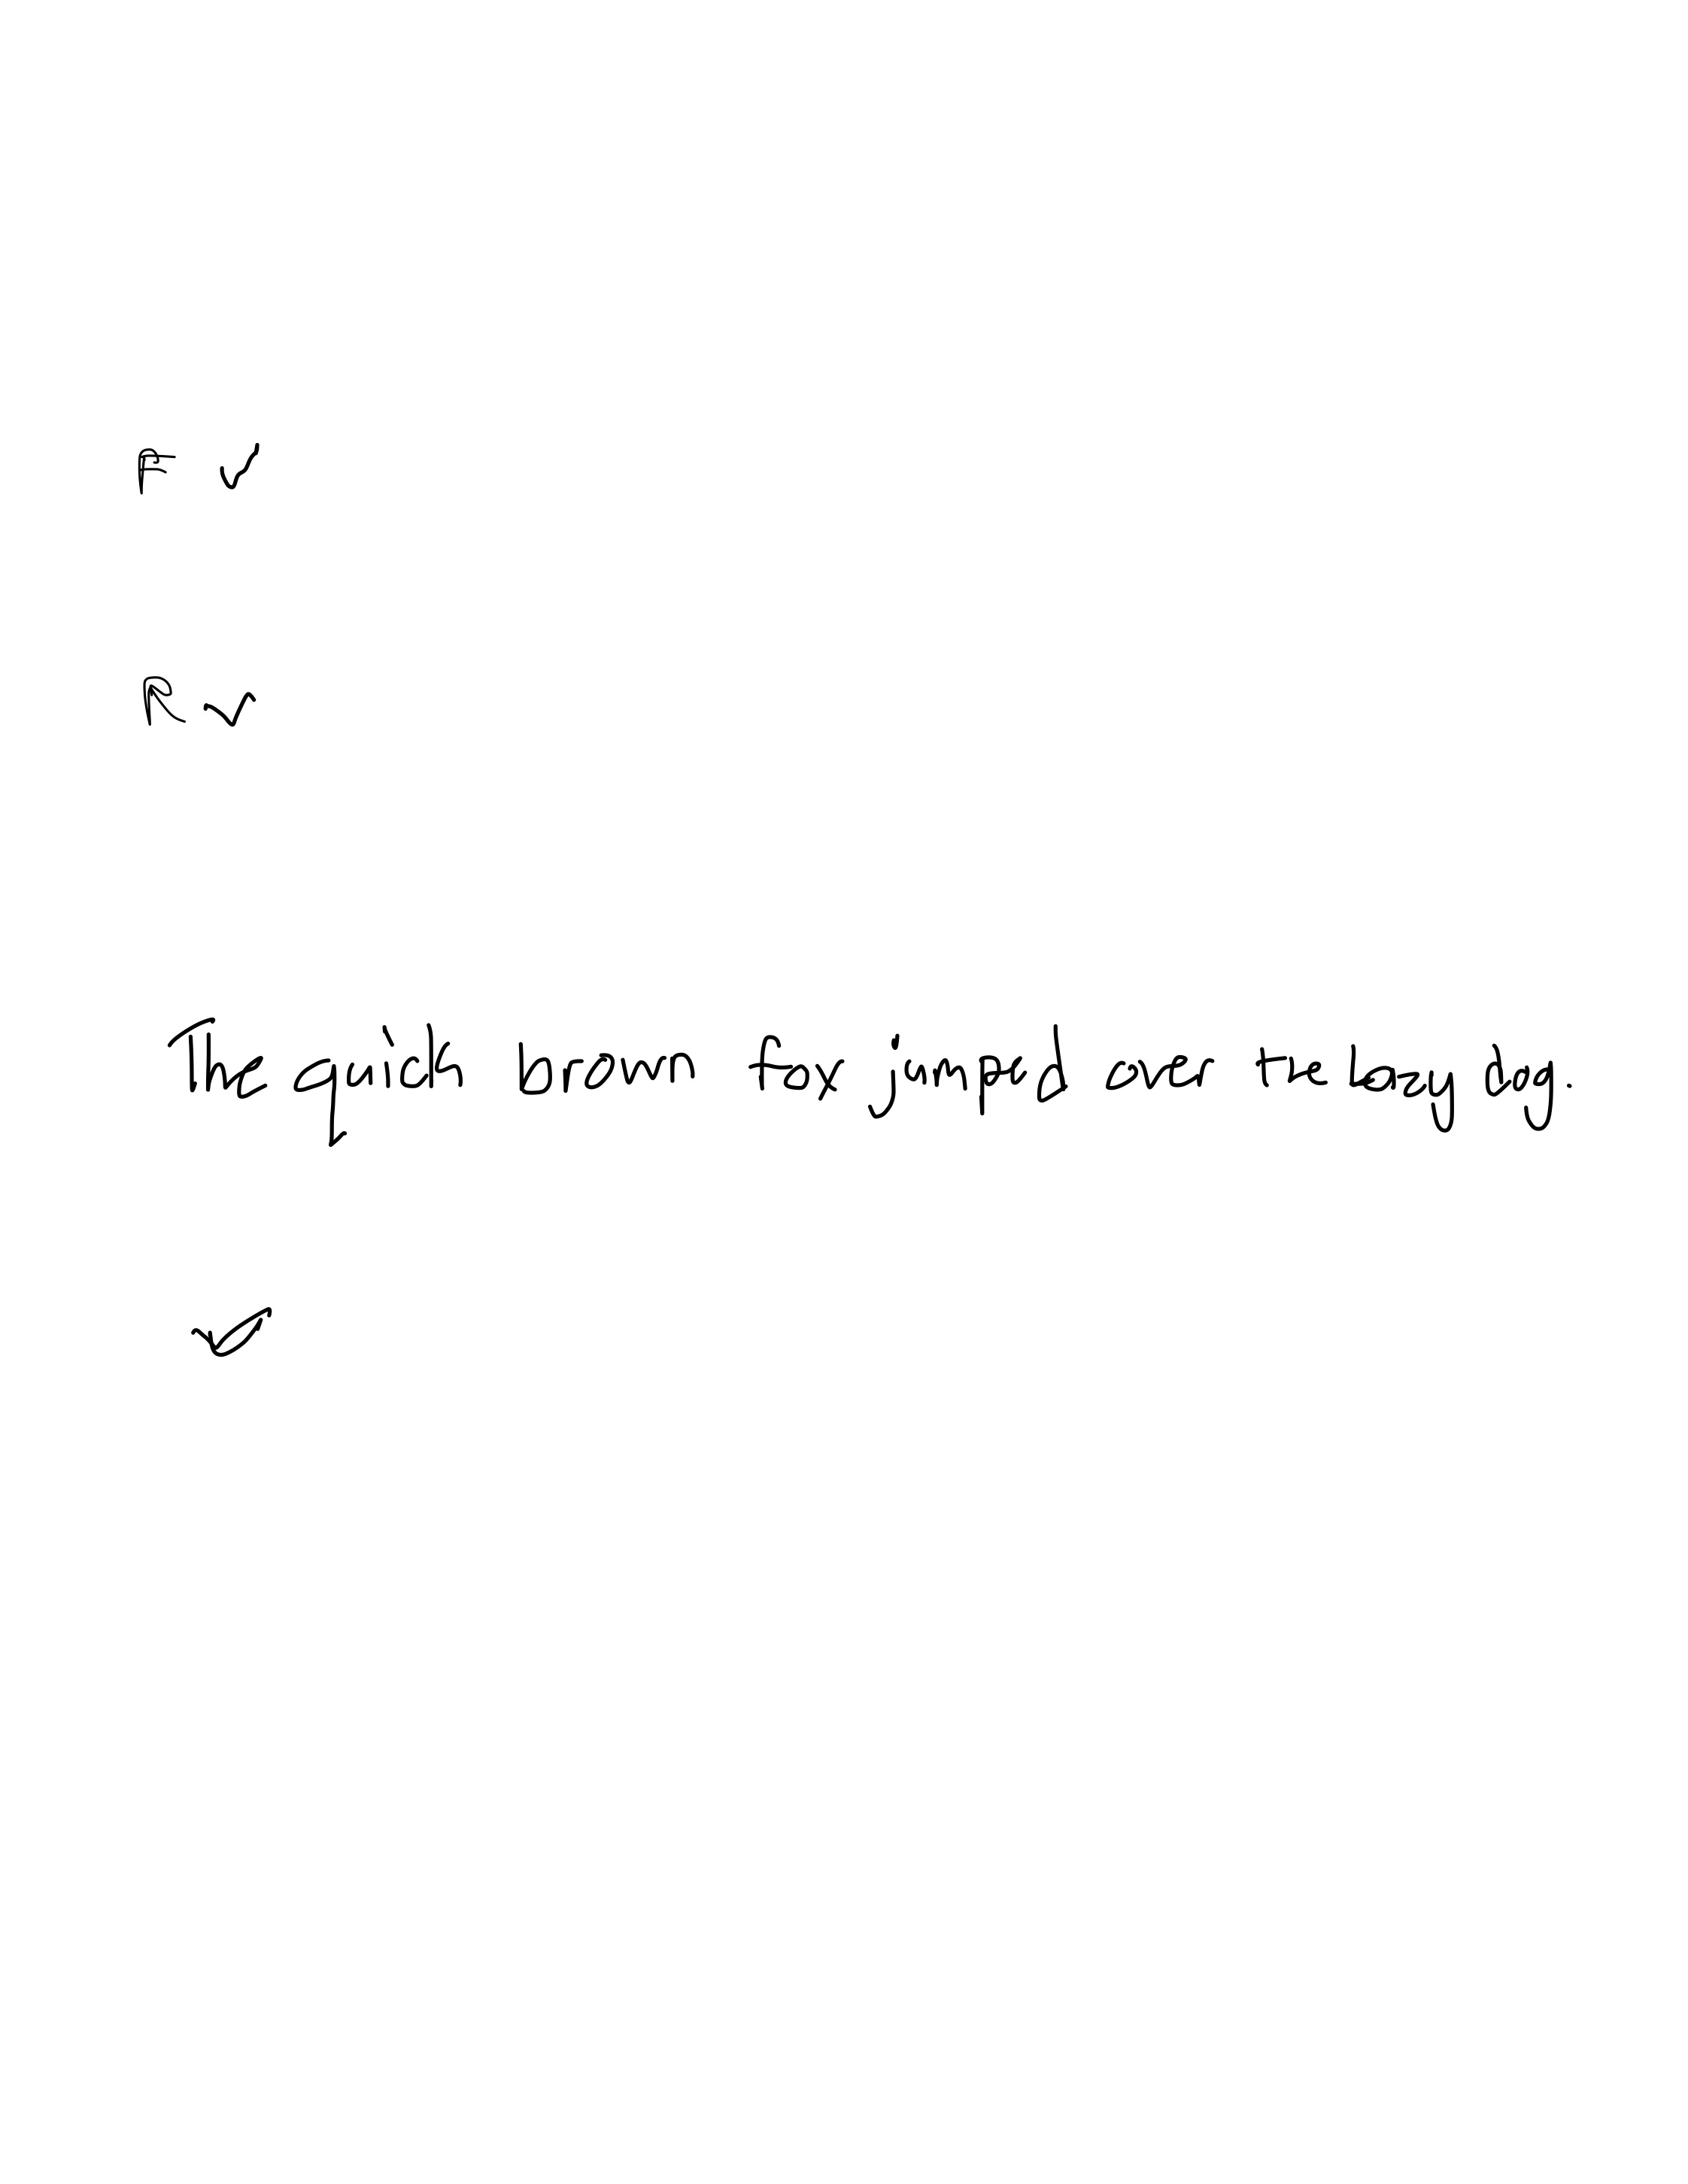 F ✓
R ✓
The quick brown fox jumped over the lazy dog.
✓